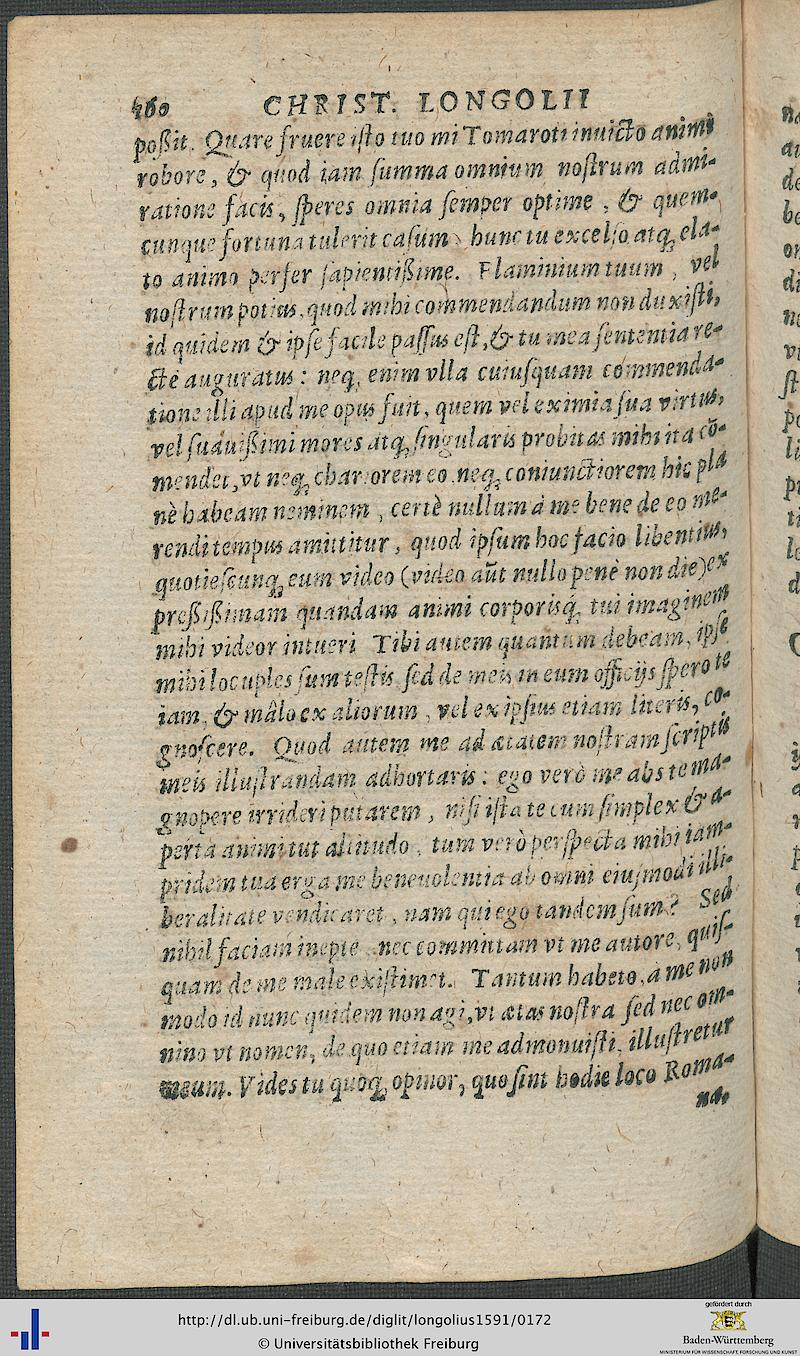 160 CHRIST. LONGOLII
poßit. Quare fruere iſto tuo mi Tomaroti inuicto animi
robore, & quod iam ſumma omnium noſtrum admi-
ratione facis, ſperes omnia ſemper optime, & quem-
cunque fortuna tulerit caſum, hunc tu excelſo atq; ela-
to animo perfer ſapientißime. Flaminium tuum, vel
noſtrum potius, quod mihi commendandum non duxiſti,
id quidem & ipſe facile paſſus eſt, & tu mea ſententia re-
ctè auguratus: neq; enim vlla cuiuſquam commenda-
tione illi apud me opus fuit, quem vel eximia ſua virtus,
vel ſuauißimi mores atq; ſingularis probitas mihi ita cō-
mendet, vt neq; chariorem eo neq; coniunctiorem hic pla
nè habeam neminem, certè nullum à me bene de eo me-
rendi tempus amittitur, quod ipſum hoc facio libentius,
quotieſcunq; eum video (video aūt nullo penè non die) ex
preßißimam quandam animi corporisq́; tui imaginem
mihi videor intueri Tibi autem quantum debeam, ipſe
mihi locuples ſum teſtis, ſed de meis in eum officijs ſpero te
iam, & mâlo ex aliorum, vel ex ipſius etiam literis, co-
gnoſcere. Quod autem me ad ætatem noſtram ſcriptis
meis illuſtrandam adhortaris: ego verò me abs te ma-
gnopere irrideri putarem, niſi iſta te cum ſimplex & a-
perta animi tui altitudo, tum verò perſpecta mihi iam-
pridem tua erga me beneuolentia ab omni eiuſmodi illi-
beralitate vendicaret, nam qui ego tandem ſum? Sed
nihil faciam inepte nec committam vt me autore, quiſ-
quam de me male exiſtimet. Tantum habeto, à me non
modo id nunc quidem non agi, vt ætas noſtra ſed nec om-
nino vt nomen, de quo etiam me admonuiſti, illuſtretur
meum. Vides tu quoq; opinor, quo ſint hodie loco Roma-
na,
http://dl.ub.uni-freiburg.de/diglit/longolius1591/0172
© Universitätsbibliothek Freiburg
gefördert durch
Baden-Württemberg
MINISTERIUM FÜR WISSENSCHAFT, FORSCHUNG UND KUNST